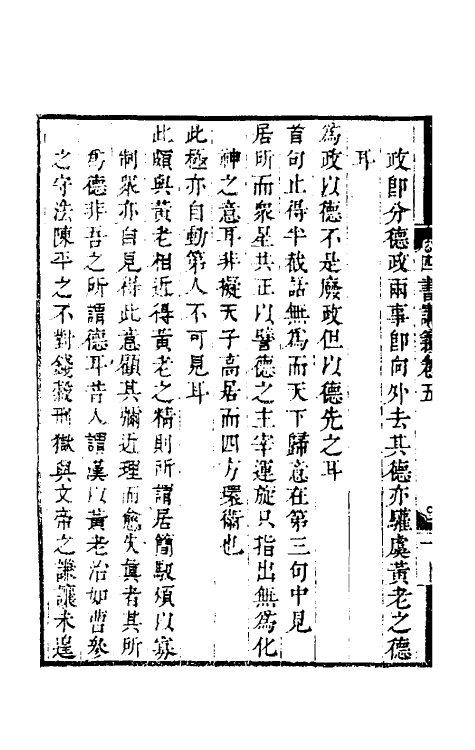 四書講義卷五
一
政卽分德政兩事卽向外去其德亦驩虞黃老之德
耳
爲政以德不是廢政但以德先之耳
首句止得半截話無爲而天下歸意在第三句中見
居所而衆星共正以譬德之主宰運旋只指出無爲化
神之意耳非擬天子高居而四方環衞也
此極亦自動第人不可見耳
此頗與黃老相近得黃老之精則所謂居簡馭煩以寡
制衆亦自見得此意顧其彌近理而愈失眞者其所
爲德非吾之所謂德耳昔人謂漢以黃老治如曹參
之守法陳平之不對錢穀刑獄與文帝之謙讓未遑